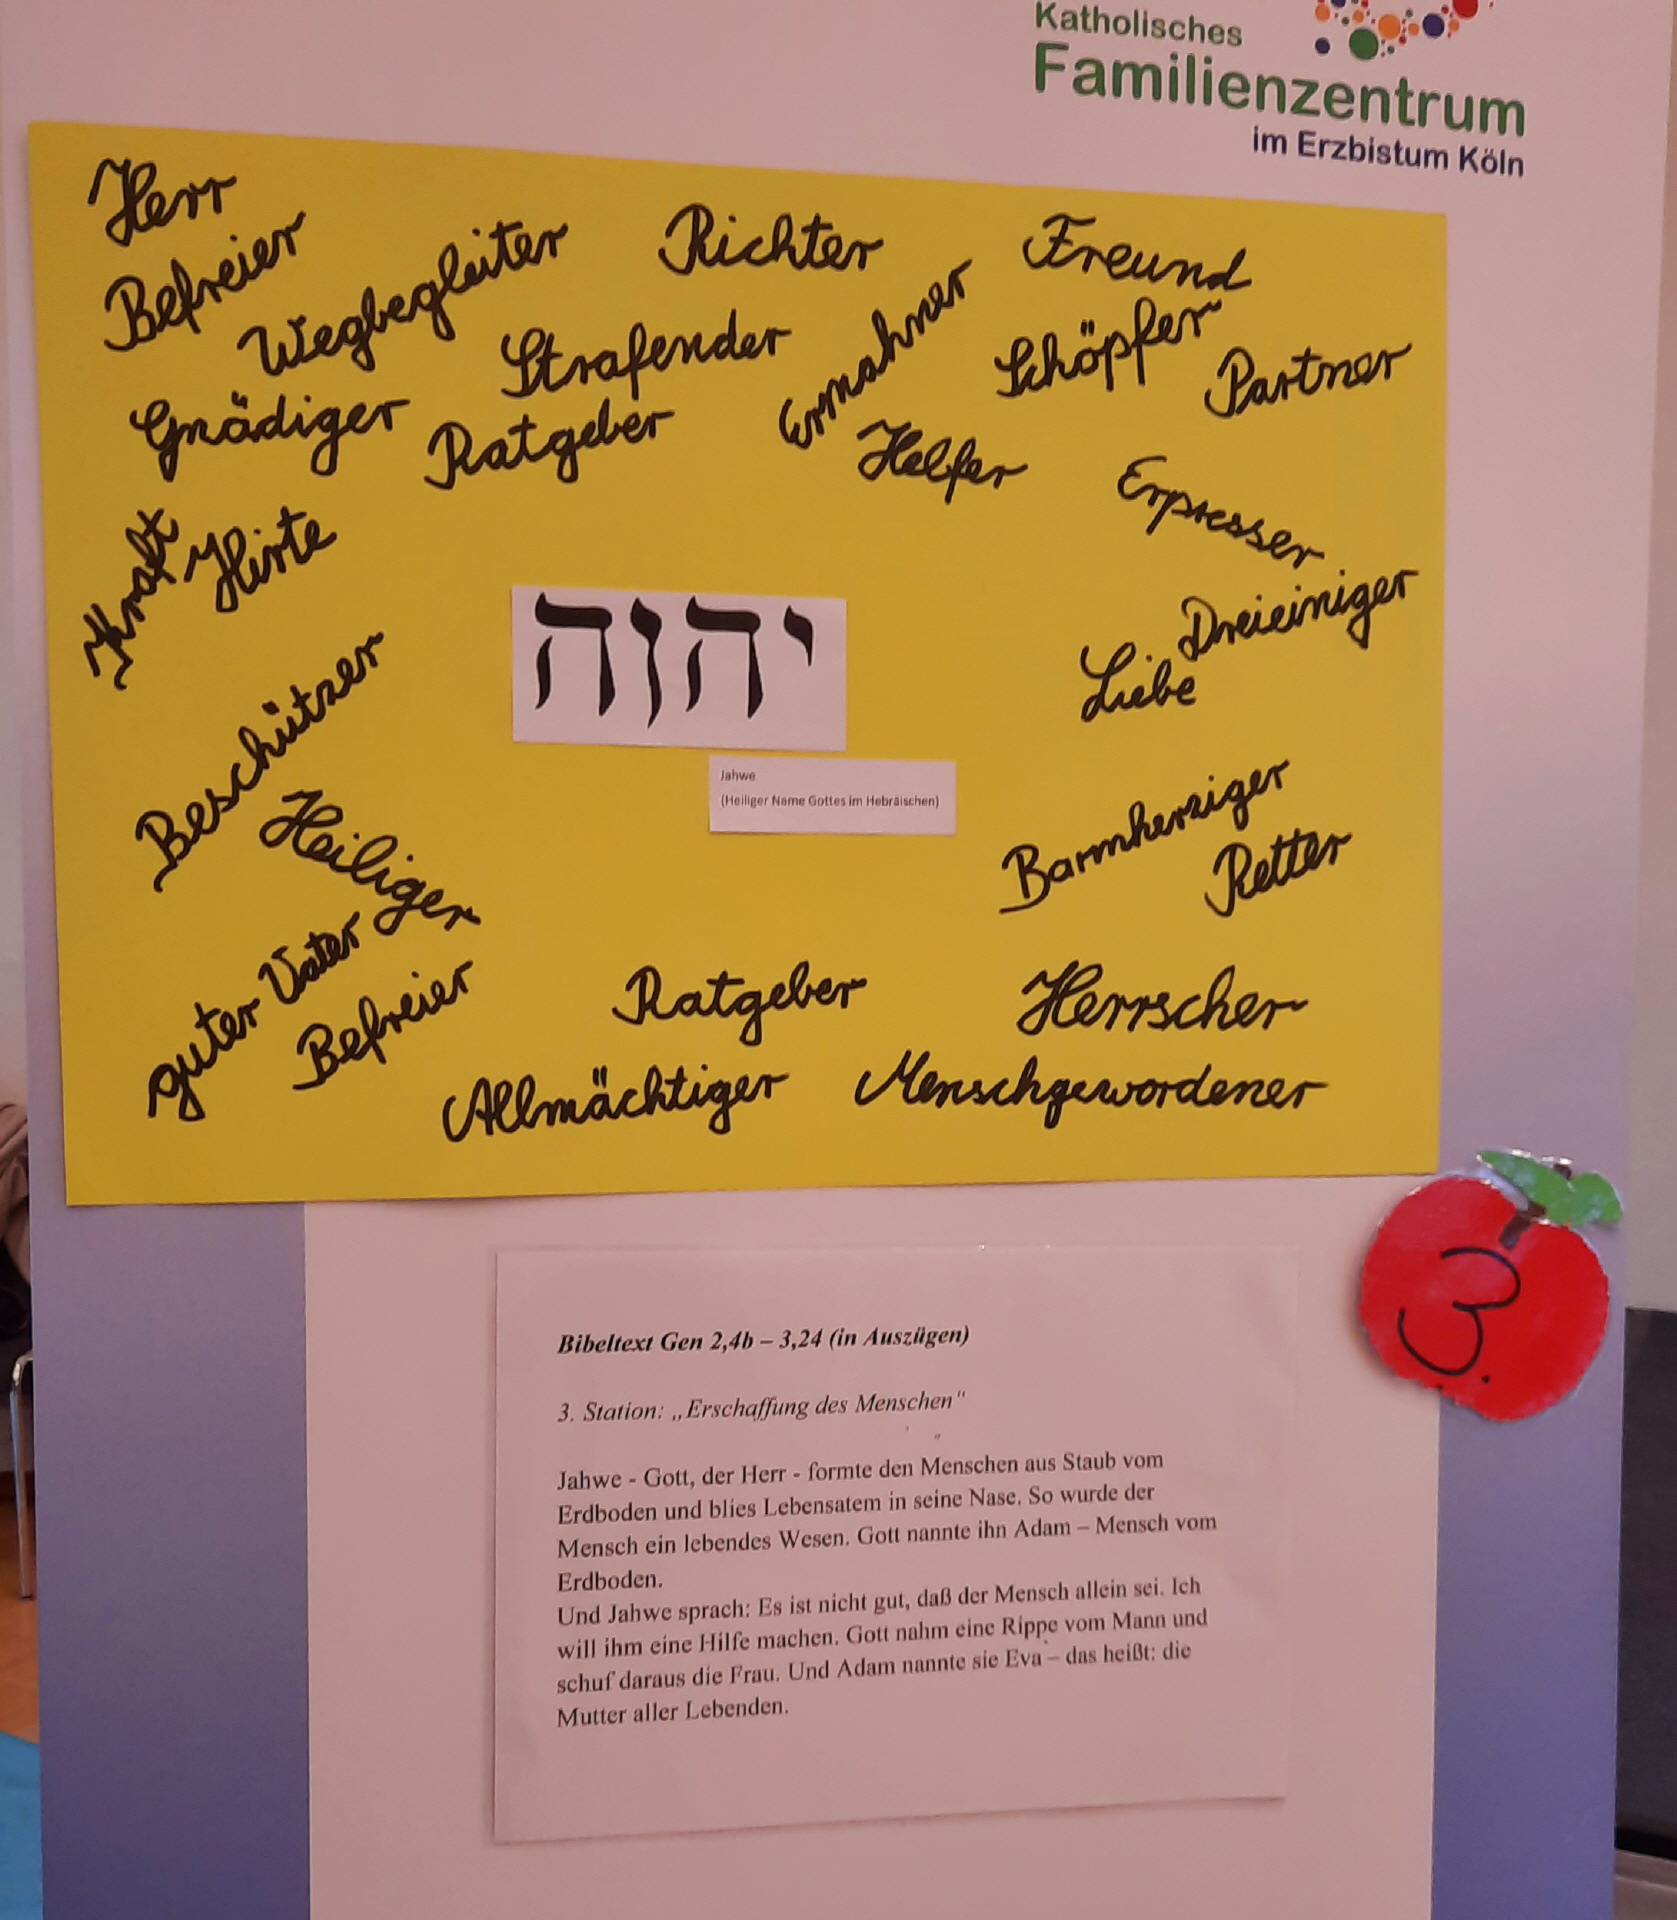 Katholisches
Familienzentrum
im Erzbistum Köln
Herr
Befreier
Wegbegleiter
Richter
Freund
Gnädiger
Strafender
Ermahner
Schöpfer
Partner
Ratgeber
Helfer
Erpresser
Kraft
Hirte
Dreieiniger
Liebe
יהוה
Jahwe
(Heiliger Name Gottes im Hebräischen)
Beschützer
Heiliger
Barmherziger
Retter
guter Vater
Befreier
Ratgeber
Herrscher
Allmächtiger
Menschgewordener
3.
Bibeltext Gen 2,4b – 3,24 (in Auszügen)
3. Station: „Erschaffung des Menschen“
Jahwe - Gott, der Herr - formte den Menschen aus Staub vom
Erdboden und blies Lebensatem in seine Nase. So wurde der
Mensch ein lebendes Wesen. Gott nannte ihn Adam – Mensch vom
Erdboden.
Und Jahwe sprach: Es ist nicht gut, daß der Mensch allein sei. Ich
will ihm eine Hilfe machen. Gott nahm eine Rippe vom Mann und
schuf daraus die Frau. Und Adam nannte sie Eva – das heißt: die
Mutter aller Lebenden.